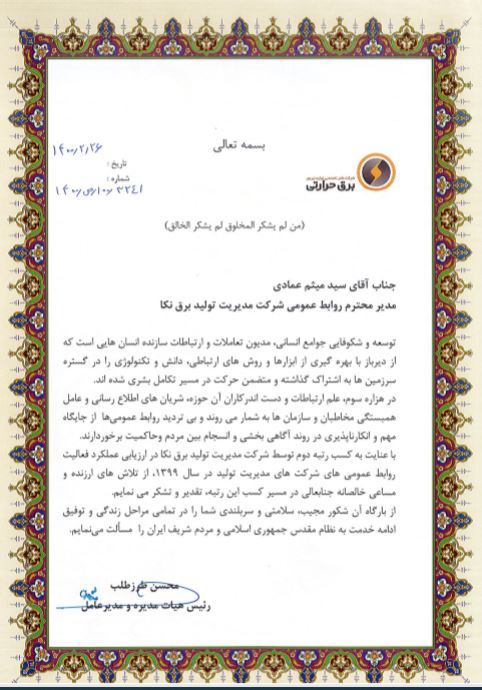 بسمه تعالی
۱۴۰۰/۲/۲۶
تاریخ :
شماره :
برق حرارتی
(من لم یشکر المخلوق لم یشکر الخالق)
جناب آقای سید میثم عمادی
مدیر محترم روابط عمومی شرکت مدیریت تولید برق نکا
توسعه و شکوفایی جوامع انسانی، مدیون تعاملات و ارتباطات سازنده انسان هایی است که
از دیرباز با بهره گیری از ابزارها و روش های ارتباطی، دانش و تکنولوژی را در گستره
سرزمین ها به اشتراک گذاشته و متضمن حرکت در مسیر تکامل بشری شده اند.
در هزاره سوم، علم ارتباطات و دست اندرکاران آن حوزه، شریان های اطلاع رسانی و عامل
همبستگی مخاطبان و سازمان ها به شمار می روند و بی تردید روابط عمومی‌ها از جایگاه
مهم و انکارناپذیری در روند آگاهی بخشی و انسجام بین مردم وحاکمیت برخوردارند.
با عنایت به کسب رتبه دوم توسط شرکت مدیریت تولید برق نکا در ارزیابی عملکرد فعالیت
روابط عمومی های شرکت های مدیریت تولید در سال ۱۳۹۹، از تلاش های ارزنده و
مساعی خالصانه جنابعالی در مسیر کسب این رتبه، تقدیر و تشکر می نمایم.
از بارگاه آن شکور مجیب، سلامتی و سربلندی شما را در تمامی مراحل زندگی و توفیق
ادامه خدمت به نظام مقدس جمهوری اسلامی و مردم شریف ایران را مسألت می‌نمایم.
محسن طرزطلب
رئیس هیات مدیره و مدیرعامل